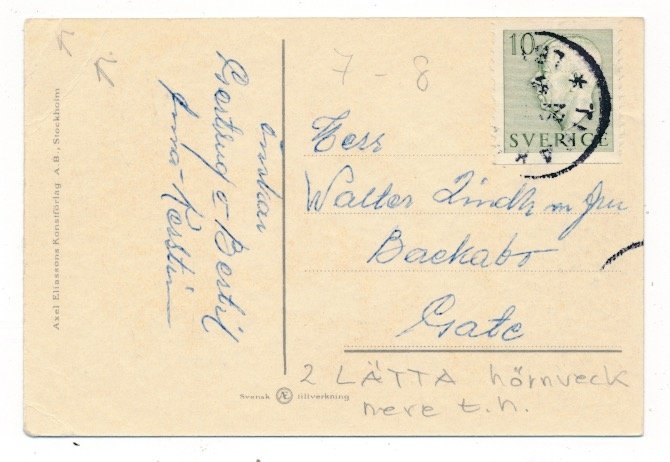 önskar
Gertrud o Bertil
Anna-Kerstin
7 - 8
10
SVERIGE
Herr
Walter Lindh m fru
Backabo
Gate
2 LÄTTA hörnveck
nere t.h.
Svensk Æ tillverkning
Axel Eliassons Konstförlag A.B., Stockholm